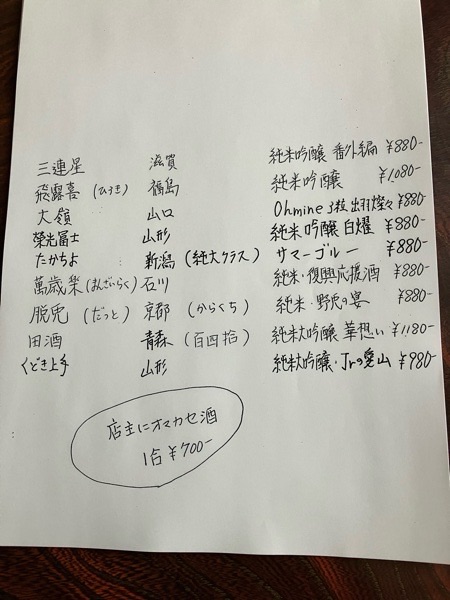 三連星 滋賀 純米吟醸 番外編 ¥880-
飛露喜 (ひろき) 福島 純米吟醸 ¥1,080-
大嶺 山口 Ohmine 3粒 出羽燦々 ¥880
栄光冨士 山形 純米吟醸 白燿 ¥880-
たかちよ 新潟 (純大クラス) サマーブルー ¥880-
萬歳楽 (まんざいらく) 石川 純米・復興応援酒 ¥880-
脱兎 (だっと) 京都 (からくち) 純米・野兎の宴 ¥880-
田酒 青森 (百四拾) 純米大吟醸 華想い ¥1180-
くどき上手 山形 純米大吟醸・Jrの愛山 ¥980-
店主にオマカセ酒
1合 ¥700-